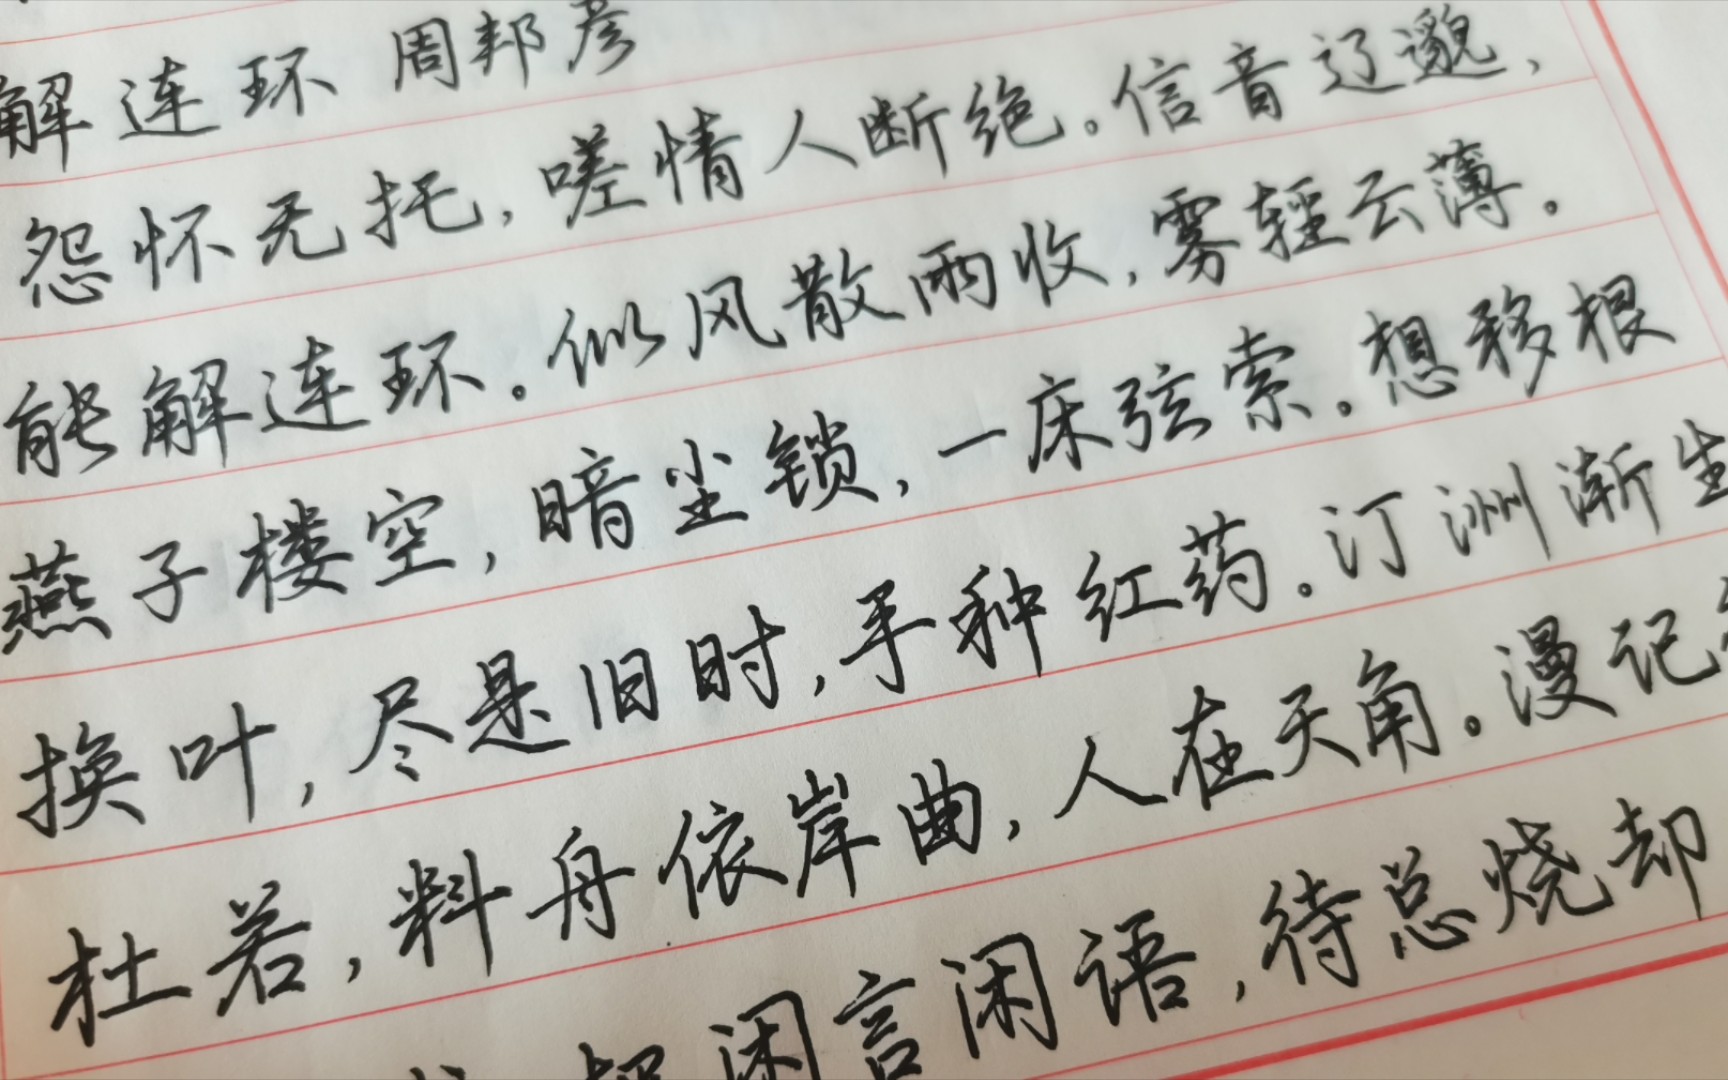 解连环 周邦彦
怨怀无托,嗟情人断绝。信音辽邈,
能解连环。似风散雨收,雾轻云薄。
燕子楼空,暗尘锁,一床弦索。想移根
换叶,尽是旧时,手种红药。汀洲渐生
杜若,料舟依岸曲,人在天角。漫记
把闲言闲语,待总烧却